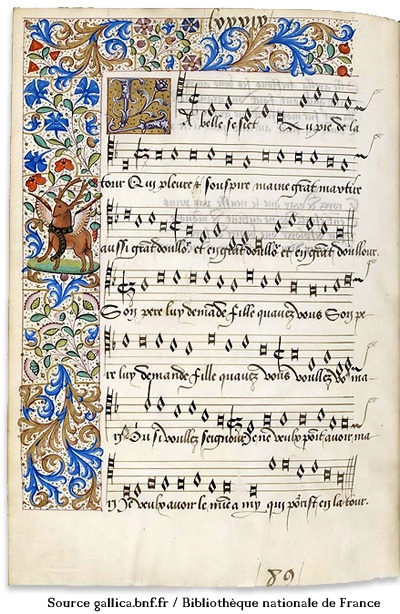 lxxxix
A belle se siet Au pie de la
tour Qui pleure & souspire maine grāt martire
aussi grāt doullor et en grāt doullor et en grāt doullour.
Son pere luy demāde fille quavez vous Son pe-
re luy demāde fille quavez vous voullez vo⁹ ma-
ry Ou si voullez seignour Je ne veulx poīt avoir ma-
ry Je veulx avoir le mie amy qui porrist en la tour.
89
Source gallica.bnf.fr / Bibliothèque nationale de France